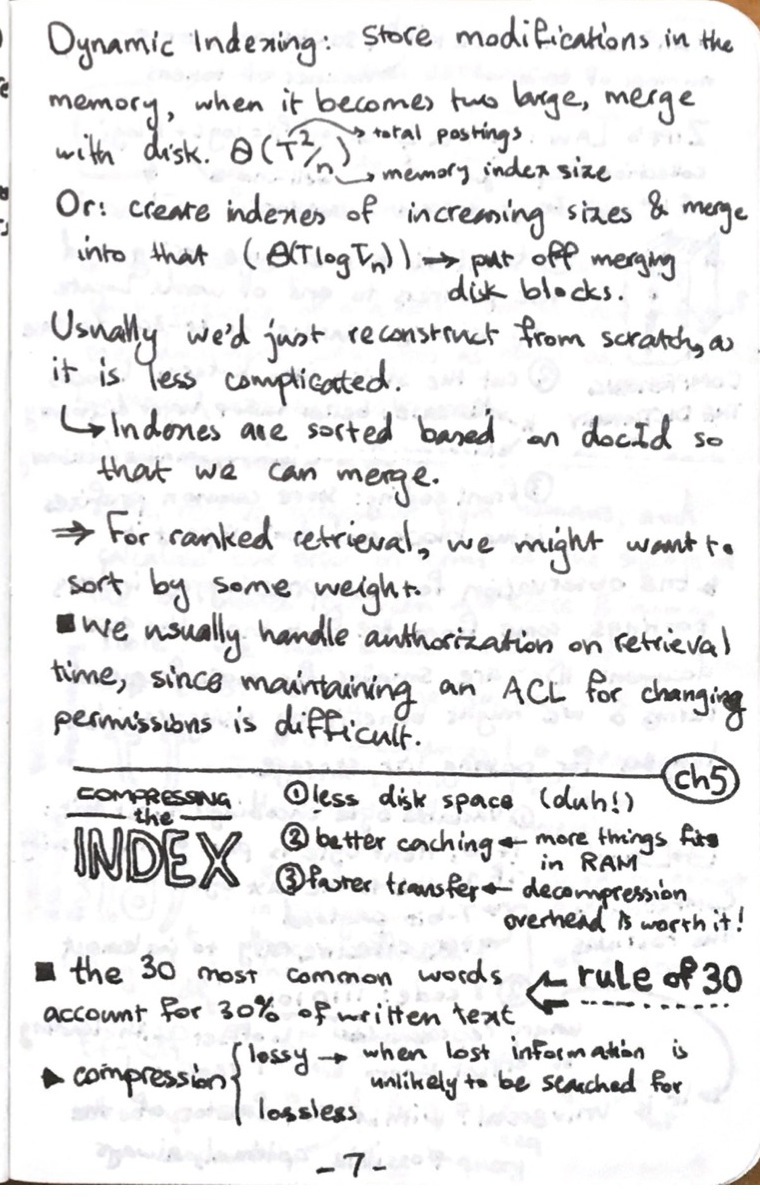 Dynamic Indexing: store modifications in the
memory, when it becomes two large, merge
with disk. Θ(T²/n) → total postings
→ memory index size
Or: create indexes of increasing sizes & merge
into that (Θ(TlogT/n)) → put off merging
disk blocks.
Usually we'd just reconstruct from scratch, as
it is less complicated.
↳ Indexes are sorted based on docId so
that we can merge.
⇒ For ranked retrieval, we might want to
sort by some weight.
■ We usually handle authorization on retrieval
time, since maintaining an ACL for changing
permissions is difficult.
ch5
COMPRESSING
the
INDEX
① less disk space (duh!)
② better caching ← more things fits
in RAM
③ faster transfer ← decompression
overhead is worth it!
■ the 30 most common words ⇐ rule of 30
account for 30% of written text
▶ compression { lossy → when lost information is
unlikely to be searched for
lossless
-7-